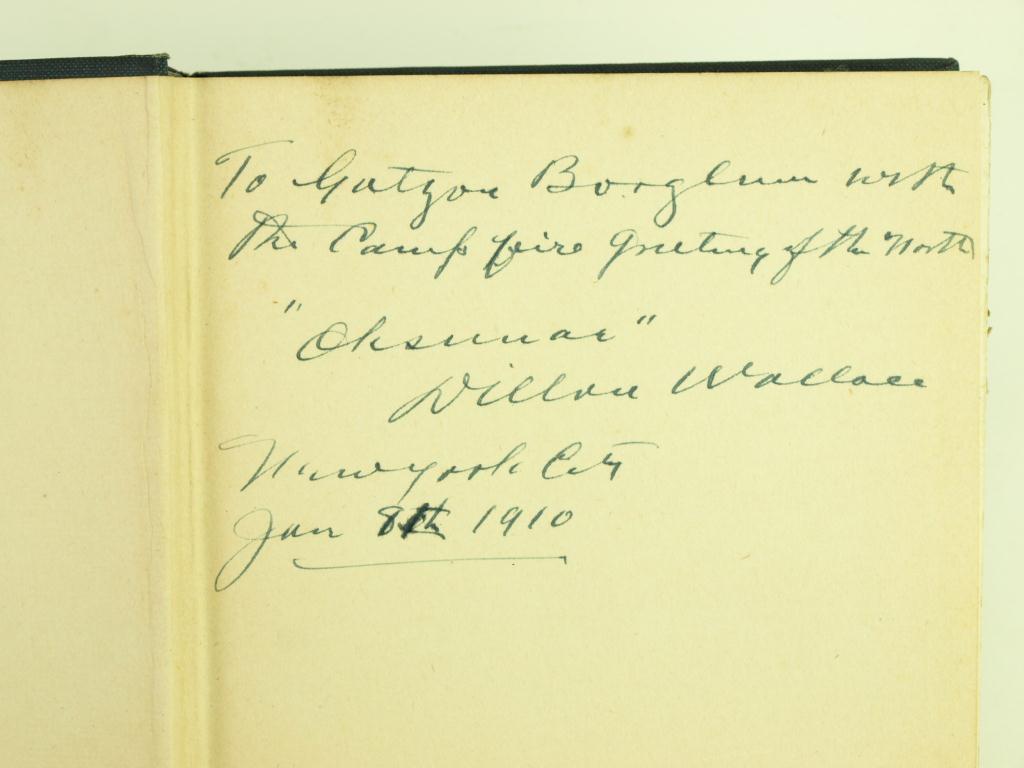 To Gutzon Borglum with
the Camp fire Greeting of the North
"Oksunae"
Dillon Wallace
New York City
Jan 8th 1910